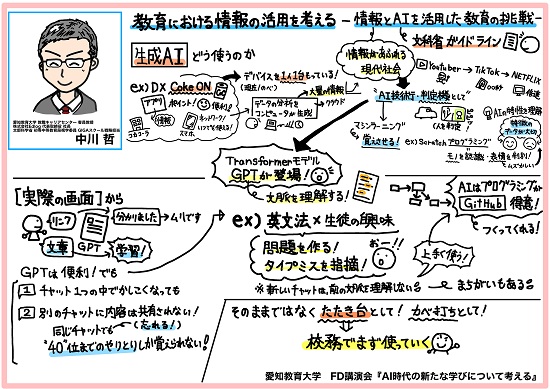 教育における情報の活用を考える －情報とAIを活用した教育の挑戦－
中川 哲
生成AI どう使うのか
ex) DX Coke ON
アプリ
ポイント!
便利!
情報
スマホ
デバイスを1人1台もっている!
大量の情報
データの分析を
コンピュータが生成
クラウド
情報があふれる
現代社会
文科省 ガイドライン
Youtuber → TikTok → NETFLIX
"AI技術で・判定機として"
AIの特性を理解
マシンラーニング
覚えさせる!
ex) Scratch プログラミング
モノを認識・表情を判別!
Transformerモデル
GPTが登場!
文脈を理解する!
[実際の画面]から
リンク
文章
GPT
分かりました → ムリです
学習!
GPTは便利!でも
1 チャット1つの中でかしこくなっても
2 別のチャットに内容は共有されない!
同じチャットでも (忘れる!)
"40"位までのやりとりしか覚えられない!
ex) 英文法×生徒の興味
問題を作る!
タイプミスを指摘!
おー!!
※新しいチャットは、前の文脈を理解しない
AIはプログラミングが
GitHub 得意!
つくってくれる!
上手く使う!
まちがいもある
そのままではなく たたき台として! かべ打ちとして!
校務でまず使っていく
愛知教育大学 FD講演会『AI時代の新たな学びについて考える』